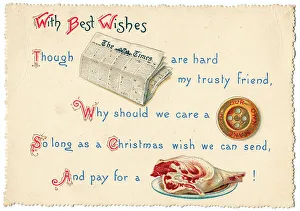 With Best Wishes
The Times
Though are hard
my trusty friend,
Why should we care a
So long as a Christmas wish we can send,
And pay for a !